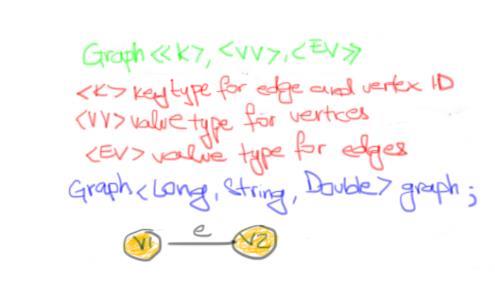 Graph<<K>, <VV>, <EV>>
<K> key type for edge and vertex ID
<VV> value type for vertices
<EV> value type for edges
Graph<Long, String, Double> graph;
e
V1 V2